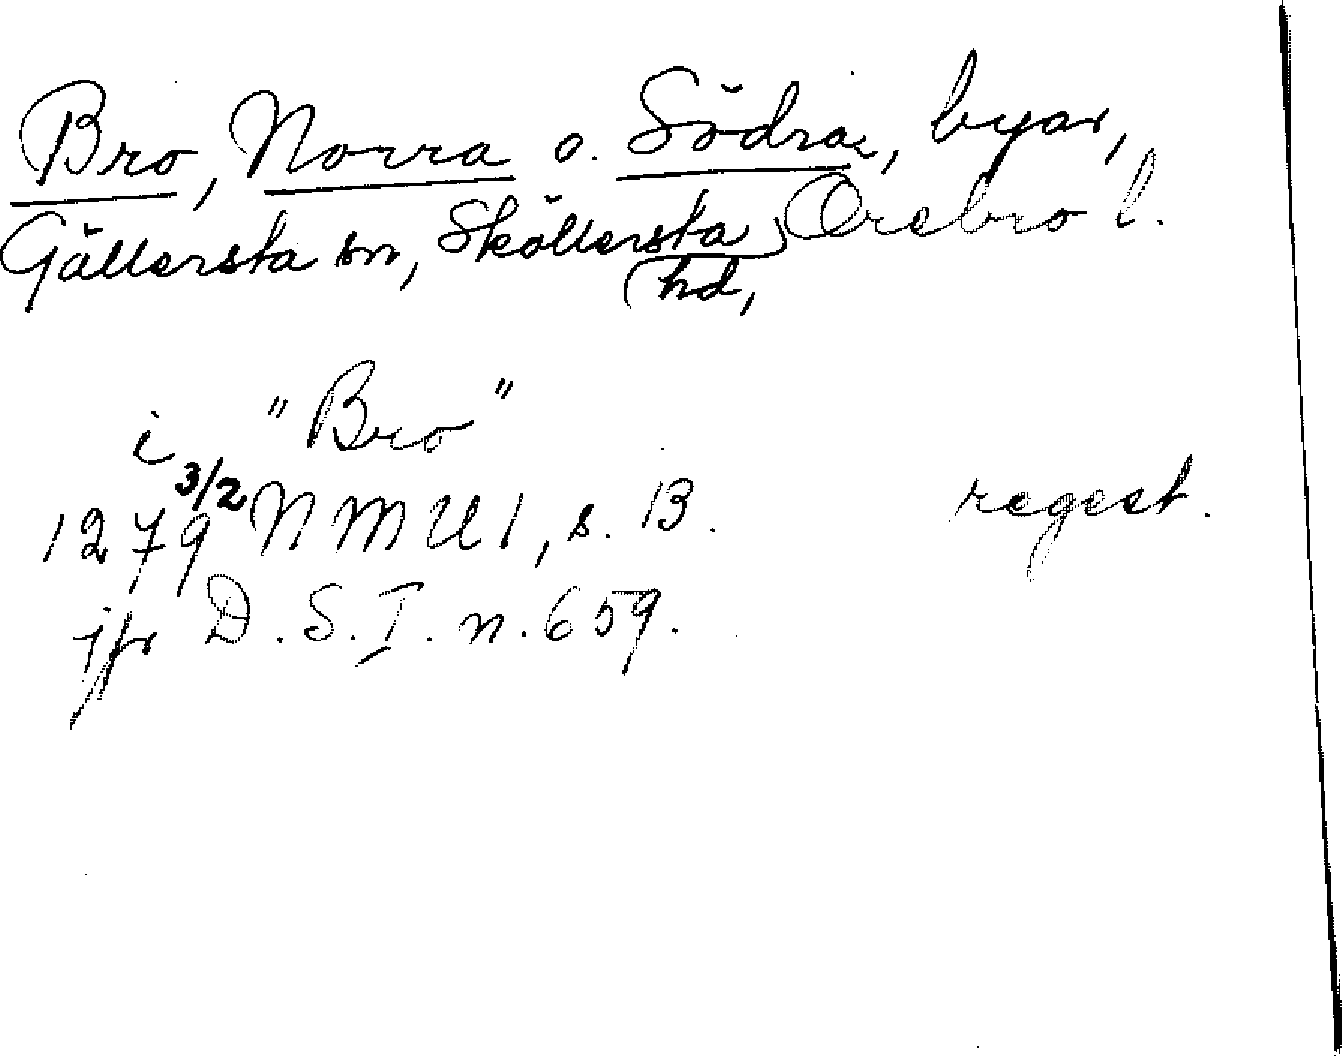 Bro, Norra o. Södra, byar,
Gällersta sn, Sköllersta hd, Örebro l.
i "Bro"
1279 3/2 NMU 1, s. 13. regest.
jfr D. S. I. n. 659.